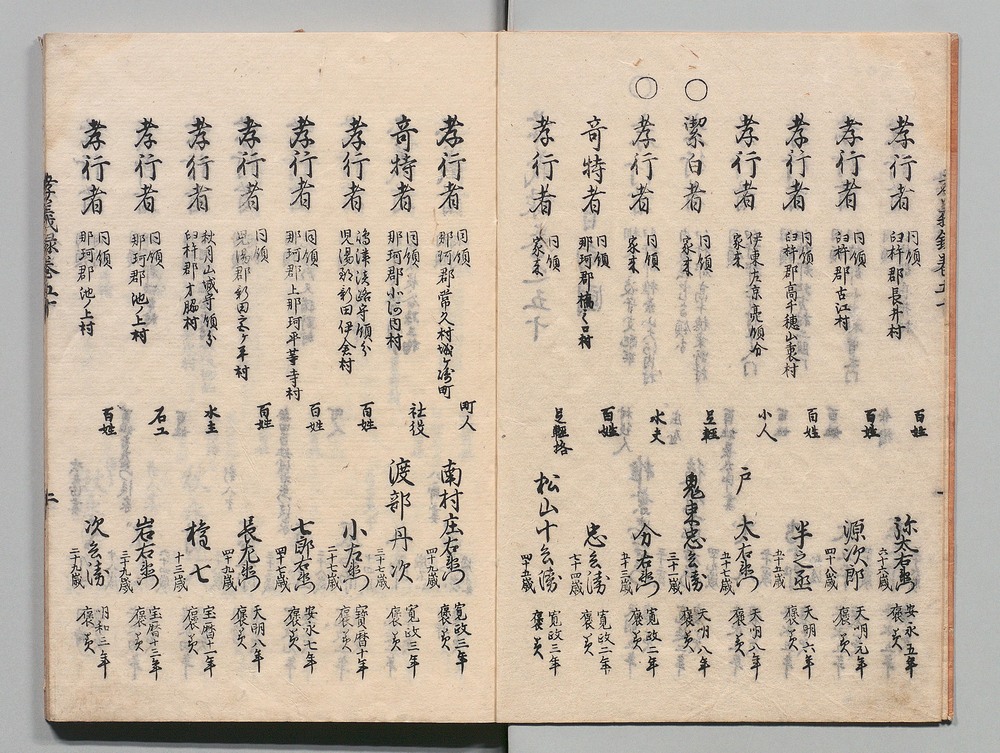 孝行者 同領 臼杵郡長井村 百姓 弥太右衛門 六十六歳 安永五年 褒美
孝行者 同領 臼杵郡古江村 百姓 源次郎 四十八歳 天明元年 褒美
孝行者 同領 臼杵郡高千穂山裏村 百姓 半之丞 五十五歳 天明六年 褒美
孝行者 伊東左京亮領分 家来 小人 戸太右衛門 五十七歳 天明八年 褒美
○ 潔白者 同領 家来 足軽 鬼束忠兵衛 三十一歳 天明八年 褒美
○ 孝行者 同領 家来 水夫 分右衛門 五十二歳 寛政二年 褒美
奇特者 同領 那珂郡 村 百姓 忠兵衛 七十四歳 寛政二年 褒美
孝行者 同領 家来 足軽格 松山十兵衛 四十五歳 寛政三年 褒美
孝行者 同領 那珂郡常久村城ヶ崎町 町人 南村庄右衛門 四十九歳 寛政三年 褒美
奇特者 同領 那珂郡小河内村 社役 渡部丹次 三十七歳 寛政三年 褒美
孝行者 嶋津淡路守領分 児湯郡新田伊倉村 百姓 小右衛門 二十七歳 寳暦十年 褒美
孝行者 同領 那珂郡上那珂平等寺村 百姓 七郎右衛門 四十七歳 安永七年 褒美
孝行者 同領 児湯郡新田 平村 百姓 長左衛門 四十九歳 天明八年 褒美
孝行者 秋月山城守領分 臼杵郡才脇村 水主 七 十三歳 宝暦十一年 褒美
孝行者 同領 那珂郡池ノ上村 石工 岩右衛門 三十六歳 宝暦十三年 褒美
孝行者 同領 那珂郡池ノ上村 百姓 次兵衛 二十九歳 明和三年 褒美
孝義録巻五十